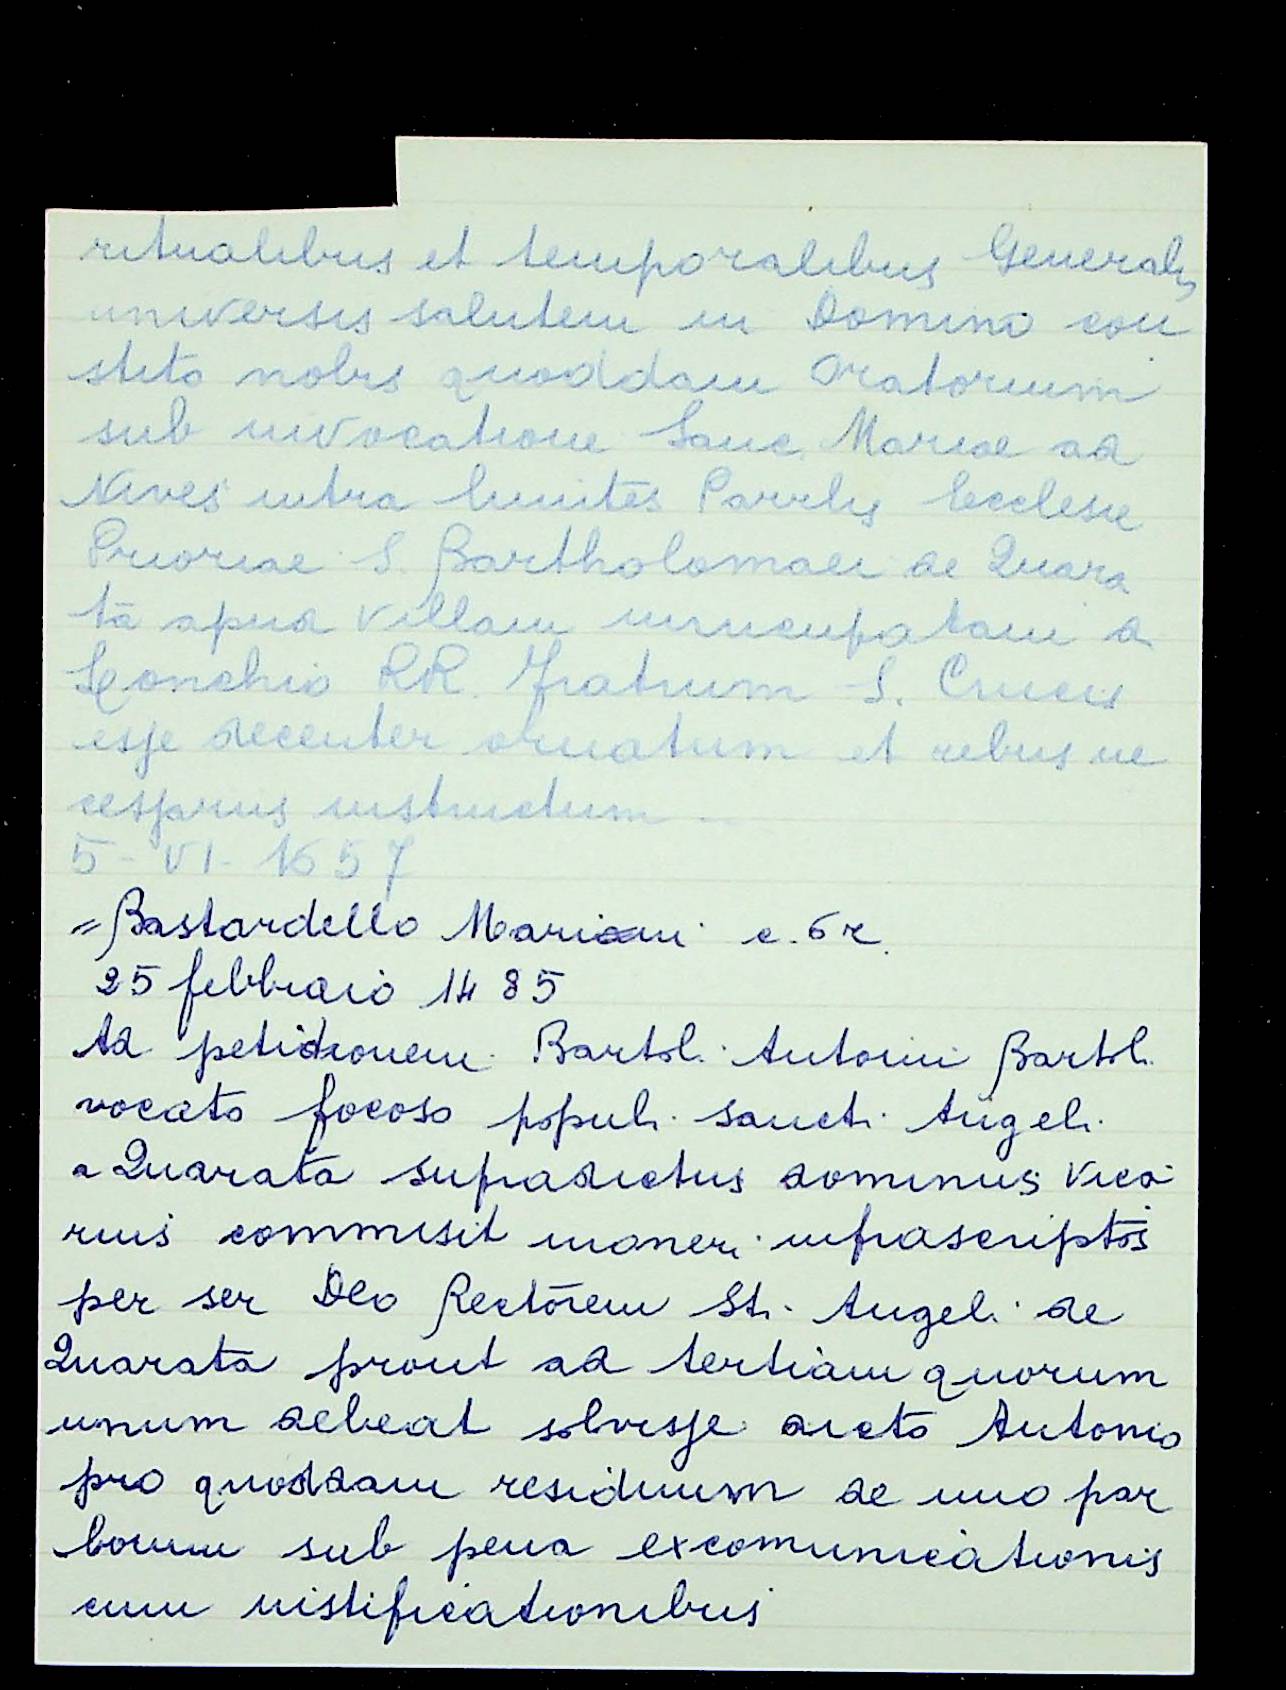 ritualibus et temporalibus Generalis
universis salutem in Domino con
stito nobis quoddam Oratorium
sub invocatione Sanc. Mariae ad
Nives intra limites Parrlis Ecclesie
Prioriae S. Bartholomaei de Quara
ta apud Villam nuncupatam a
Gonchio RR. Fratrum S. Crucis
esse decenter ornatum et rebus ne
cessariis instructum
5-VI-1657
= Bastardello Mariani c. 6 r.
25 febbraio 1485
Ad petitionem Bartol. Antonii Bartol.
vocato focoso populi sancti Angeli
a Quarata supradictus dominus Vica
rius commisit moneri infrascriptos
per ser Deo Rectorem Sti. Angeli de
Quarata prout ad tertiam quorum
unum debeat solvisse dicto Antonio
pro quoddam residuum de uno par
bovum sub pena excomunicationis
cum iustificationibus